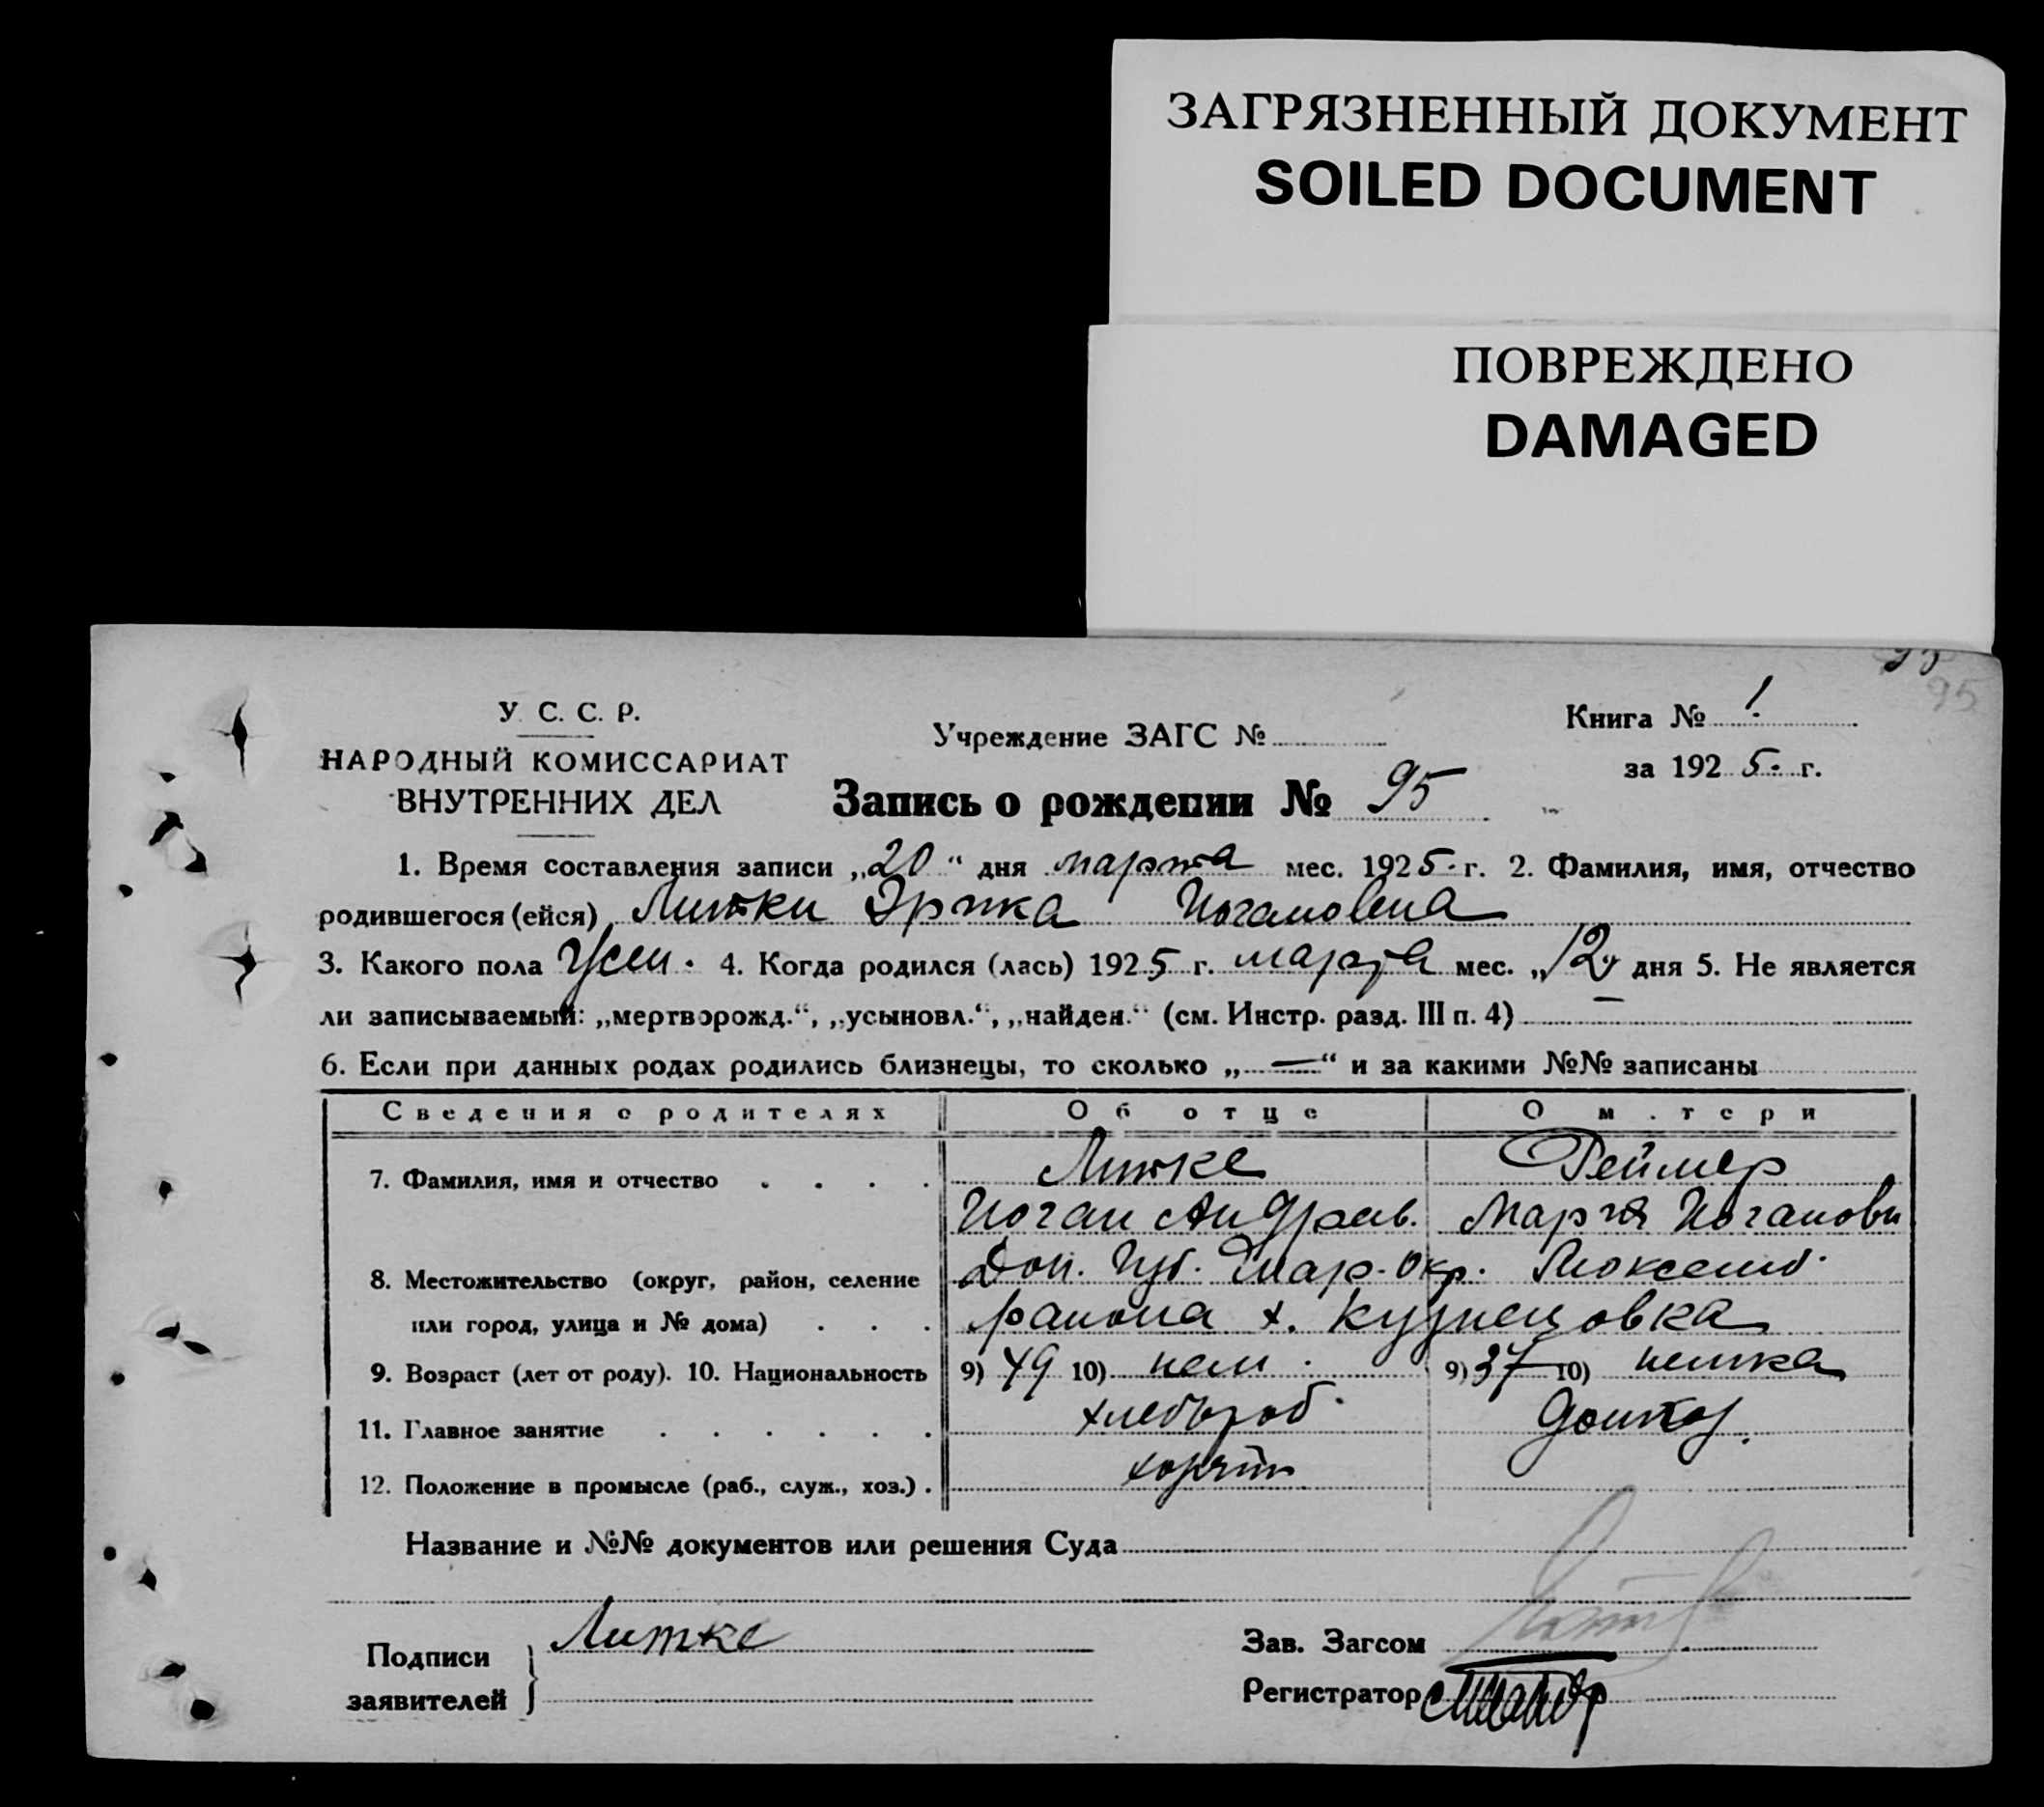 ЗАГРЯЗНЕННЫЙ ДОКУМЕНТ
SOILED DOCUMENT
ПОВРЕЖДЕНО
DAMAGED
95
У. С. С. Р.
НАРОДНЫЙ КОМИССАРИАТ
ВНУТРЕННИХ ДЕЛ
Учреждение ЗАГС №
Книга № 1
за 1925. г.
Запись о рождении № 95
1. Время составления записи „20“ дня марта мес. 1925. г. 2. Фамилия, имя, отчество
родившегося (ейся) Литки Эрика Иогановна
3. Какого пола 4. Когда родился (лась) 1925 г. марта мес. „12“ дня 5. Не является
ли записываемый: „мертворожд.“, „усыновл.“, „найден.“ (см. Инстр. разд. III п. 4) —
6. Если при данных родах родились близнецы, то сколько „—“ и за какими №№ записаны
Сведения о родителях Об отце О м.тери
7. Фамилия, имя и отчество . . . . Литке Реймер
Иоган Андрев. Мария Иогановн
8. Местожительство (округ, район, селение Дон. Губ. Окр.
или город, улица и № дома) . . . района х. Кузнецовка
9. Возраст (лет от роду). 10. Национальность 9) 49 10) нем. 9) 37 10) немка
11. Главное занятие . . . . . . хлебороб. домхоз.
12. Положение в промысле (раб., служ., хоз.) . хозяин
Название и №№ документов или решения Суда
Подписи заявителей } Литке
Зав. Загсом
Регистратор